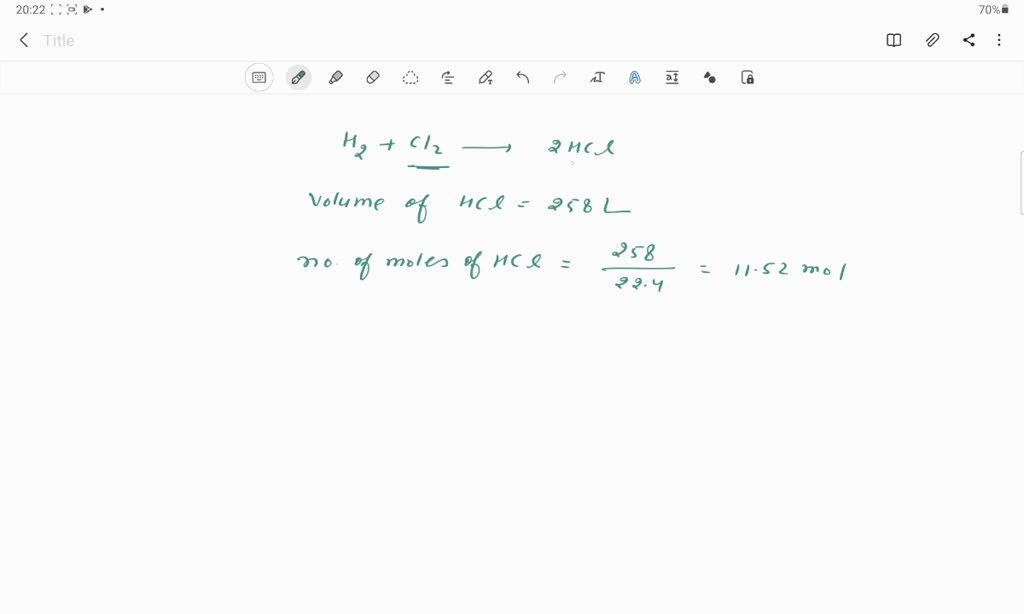 20:22
70%
Title
H2 + Cl2 ⟶ 2HCl
Volume of HCl = 258 L
no. of moles of HCl = 258/22.4 = 11.52 mol